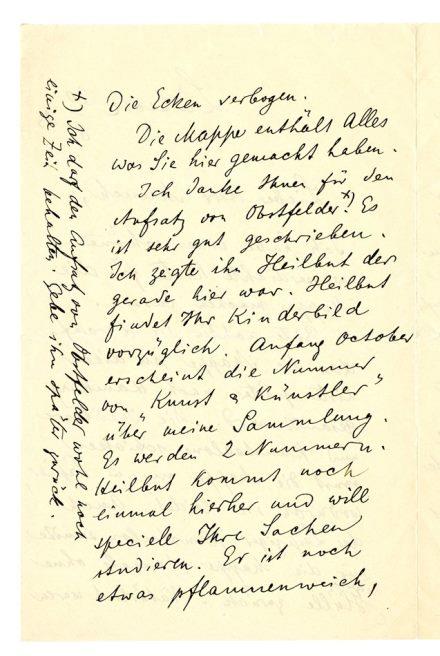 Die Ecken verbogen.
Die Mappe enthält Alles
was Sie hier gemacht haben.
Ich danke Ihnen für den
Aufsatz von Obstfelder x)! Es
ist sehr gut geschrieben.
Ich zeigte ihn Heilbut der
gerade hier war. Heilbut
findet Ihr Kinderbild
vorzüglich. Anfang October
erscheint die Nummer
von „Kunst & Künstler”
über meine Sammlung.
Es werden 2 Nummern.
Heilbut kommt noch
einmal hierher und will
speciell Ihre Sachen
studieren. Er ist noch
etwas pflaumenweich,
x) Ich darf den Aufsatz von Obstfelder wohl noch
einige Zeit behalten. Gebe ihn später zurück.